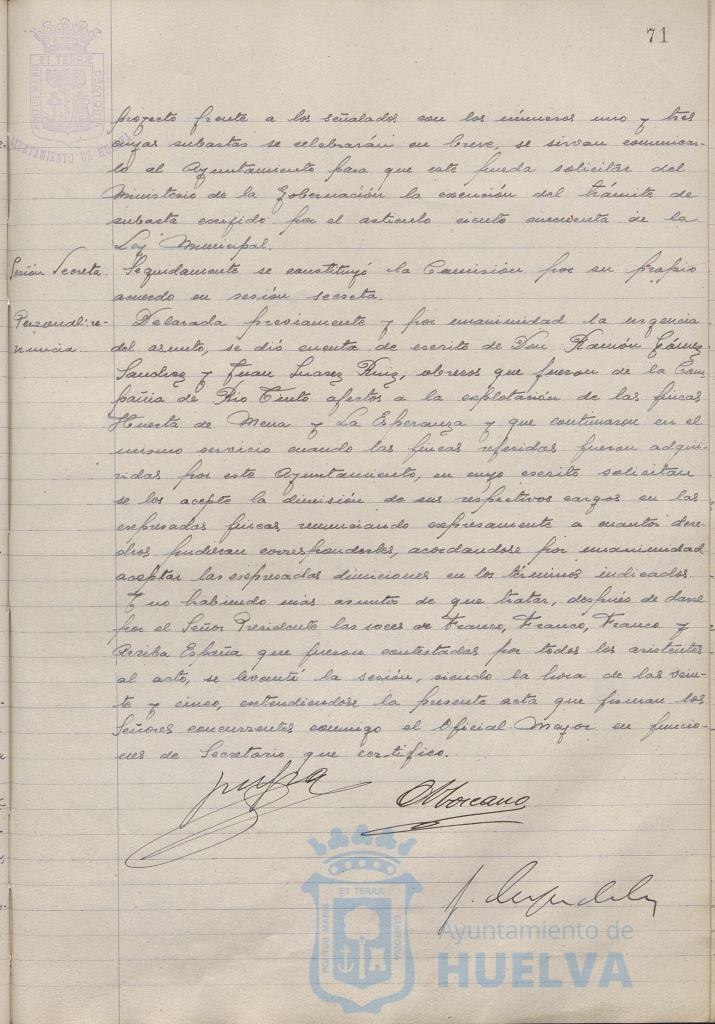 71
PORTUS MARIS ET TERRÆ CUSTODIA
AYUNTAMIENTO DE HUELVA
proyecto frente a los señalados con los números uno y tres
cuyas subastas se celebrarán en breve, se sirvan comunicar-
lo al Ayuntamiento para que este pueda solicitar del
Ministerio de la Gobernación la exención del trámite de
subasta exigido por el artículo ciento cincuenta de la
Ley Municipal.
Sesión Secreta.
Seguidamente se constituyó la Comisión por su propio
acuerdo en sesión secreta.
Personal: re-
nuncia.
Delarada previamente y por unanimidad la urgencia
del asunto, se dió cuenta de escrito de Don Ramón Gómez
Sanchez y Juan Suarez Ruiz, obreros que fueron de la Com-
pañia de Rio Tinto afectos a la explotación de las fincas
Huerta de Mena y La Esperanza y que continaron en el
mismo servicio cuando las fincas referidas fueron adqui-
ridas por este Ayuntamiento, en cuyo escrito solicitan
se les acepte la dimisión de sus respectivos cargos en las
expresadas fincas, renunciando expresamente a cuantos dere-
chos pudieran corresponderles, acordandose por unanimidad
aceptar las expresadas dimiciones en los términos indicados.
Y no habiendo más asuntos de que tratar, después de darse
por el Señor Presidente las voces de Franco, Franco, Franco y
Arriba España que fueron contestadas por todos los asistentes
al acto, se levantó la sesión, siendo la hora de las vein-
te y cinco, extendiendose la presente acta que firman los
Señores concurrentes conmigo el Oficial Mayor en funcio-
nes de Secretario que certifico.
PORTUS MARIS ET TERRÆ CUSTODIA
Ayuntamiento de
HUELVA